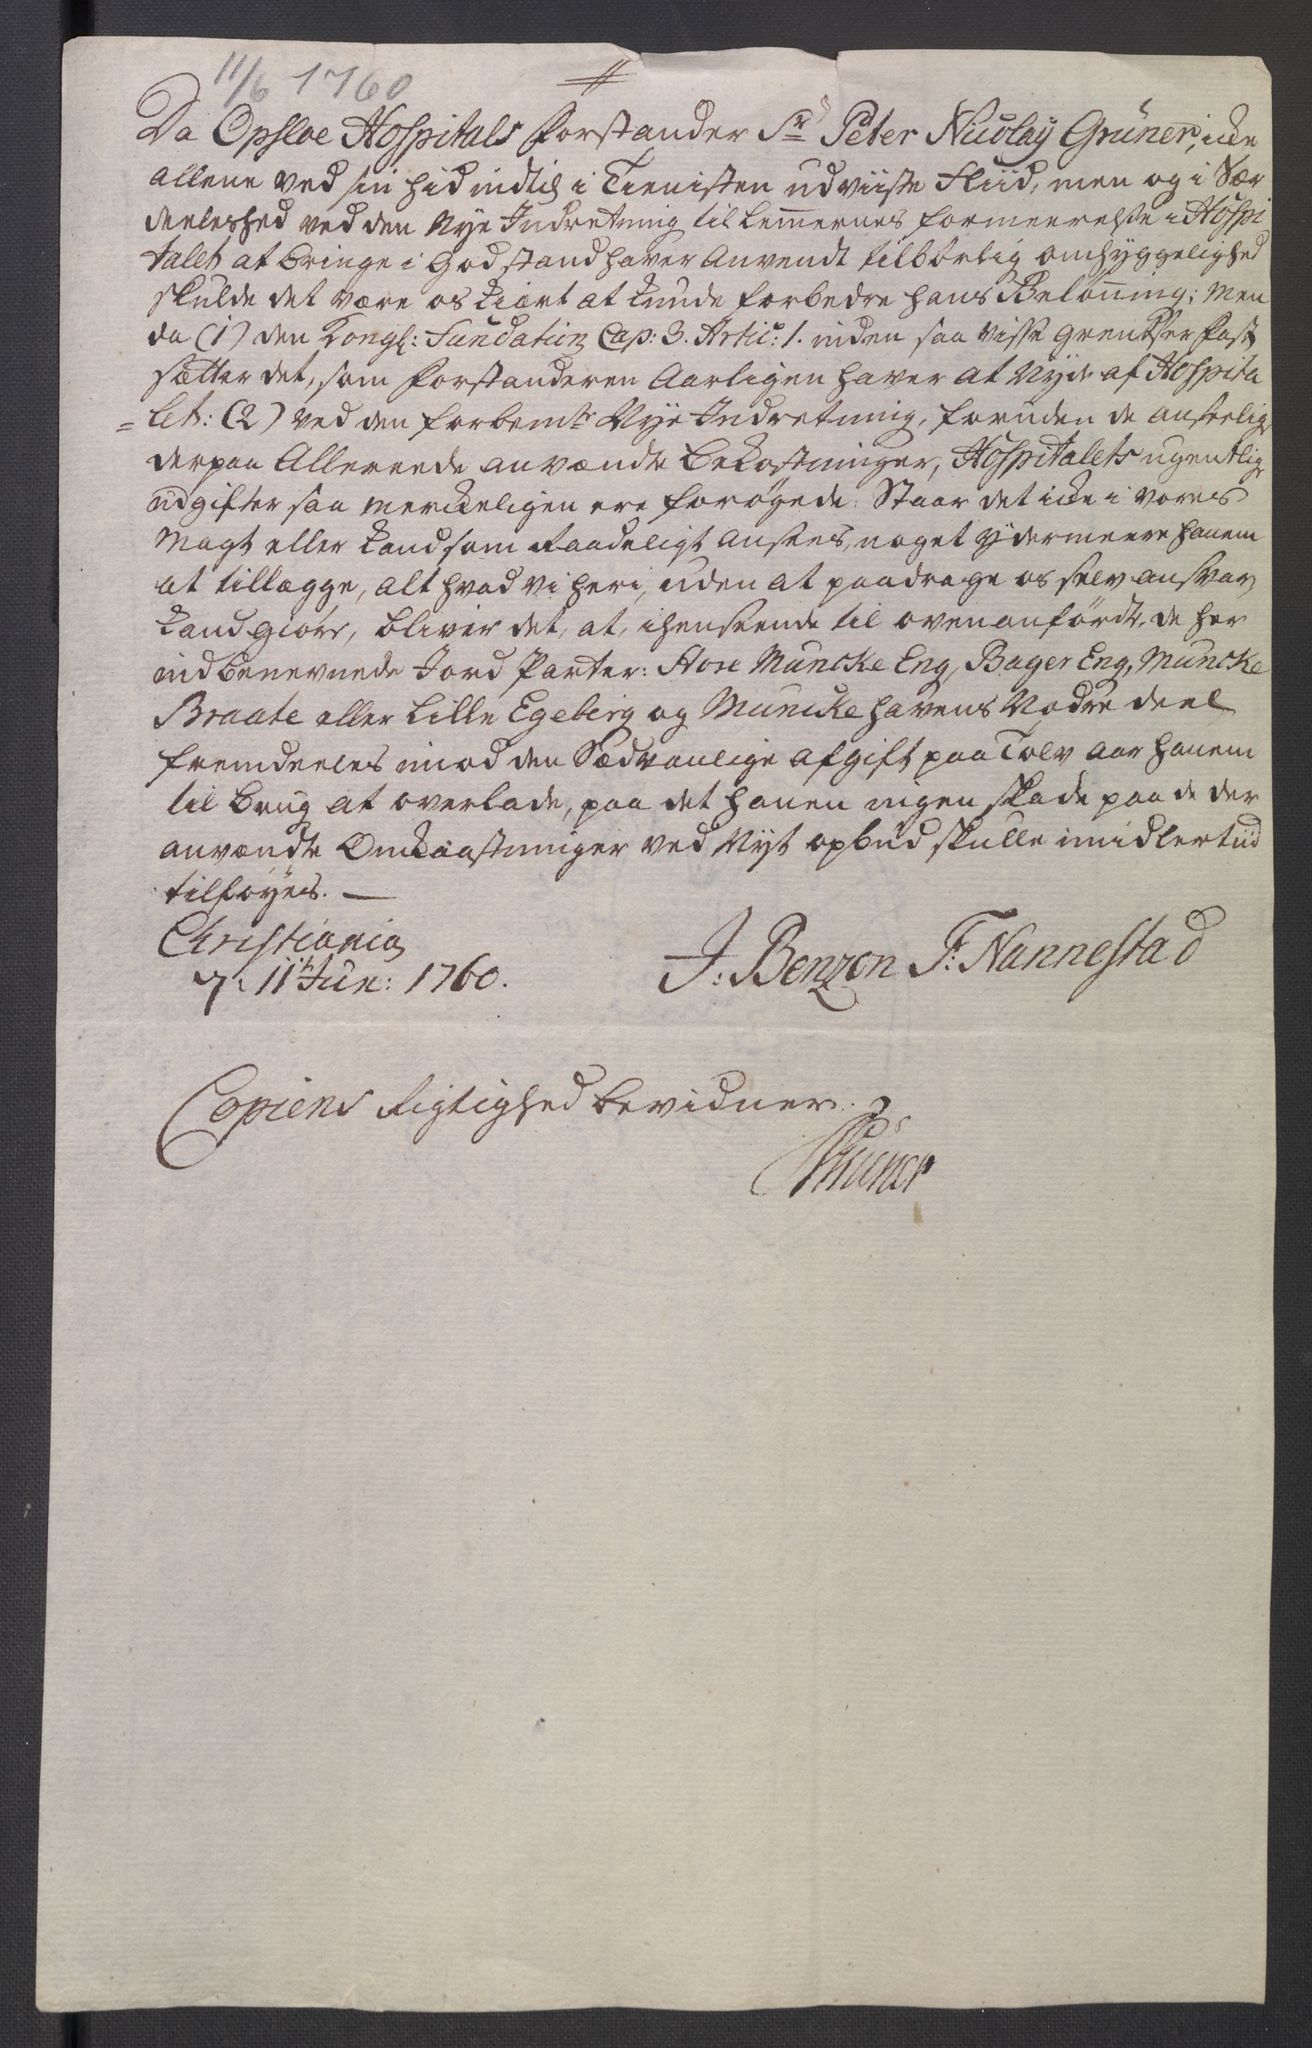 11/6 1760
Da Opsloe Hospitals Forstander Sr Peter Nicolaÿ Grüner, icke
allene ved sin hid indtil i Tienisten udviiste Fliid, men og i Sær
deeleshed ved den Nye Indretning til Lemmernes Formeerelse i Hospi
talet at bringe i God stand haver Anvendt tilbørlig omhyggelighed
skulde det være os kiært at kunde forbedre hans Belønning; Men
da (1) den Kongl: Fundation Cap: 3. Artic: 1. inden saa visse Grentzer Fast
sætter det, som Forstanderen Aarligen haver at Nyde af Hospita
= let: (2) ved den forbemte Nye Indretning, foruden de anseelige
derpaa Allereede anvændte bekostninger, Hospitalets ugentlige
udgifter saa merckeligen ere forøgede: Staar det icke i vores
Magt eller kand som Raadeligt ansees, noget ydermeere hanem
at tillægge, alt hvad vi heri, uden at paadrage os selv ansvar,
kand giøre, bliver det, at, i henseende til ovenanførdte, de her
ind benevnede Jord Parter: Store Muncke Eng, Bager Eng, Muncke
Braate eller Lille Egeberg og Muncke havens Nødre deel
fremdeeles imod den Sædvanlige afgift paa Tolv Aar hanem
til brug at overlade, paa det hanem ingen skade paa de der
anvændte Omkaastninger ved Nyt opbud skulle imidlertiid
tilføyes. —
Christiania
d: 11te Jun: 1760.
J: Benzon F: Nannestad
Copiens Rigtighed bevidner.
Grüner